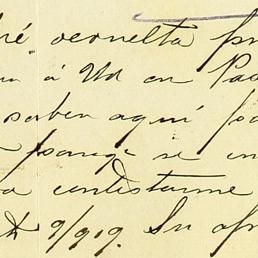 ré vernelta
á Ud en Pa
saben aquí
porque se en
a contestarme
9/919. Su af